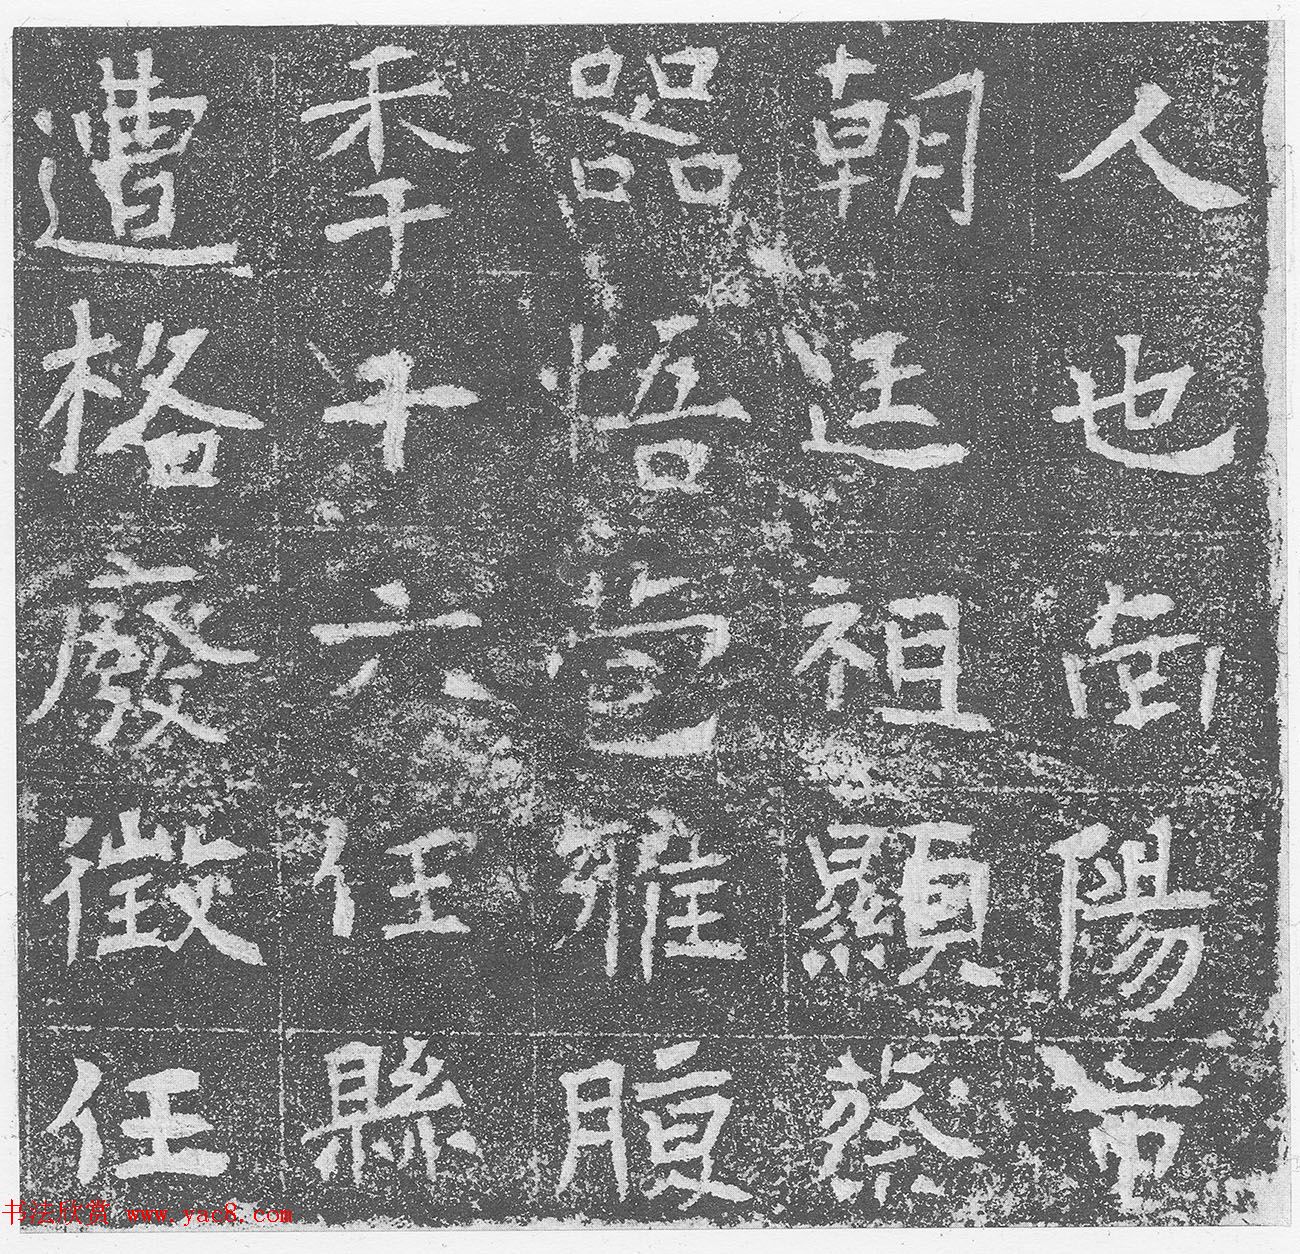 人也南陽
朝廷祖顯蔡
器悟雅腹
秊十六任縣
遭格廢徵任
书法欣赏 www.yac8.com